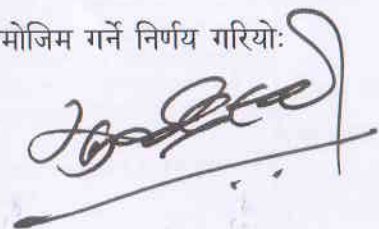 मोजिम गर्ने निर्णय गरियोः